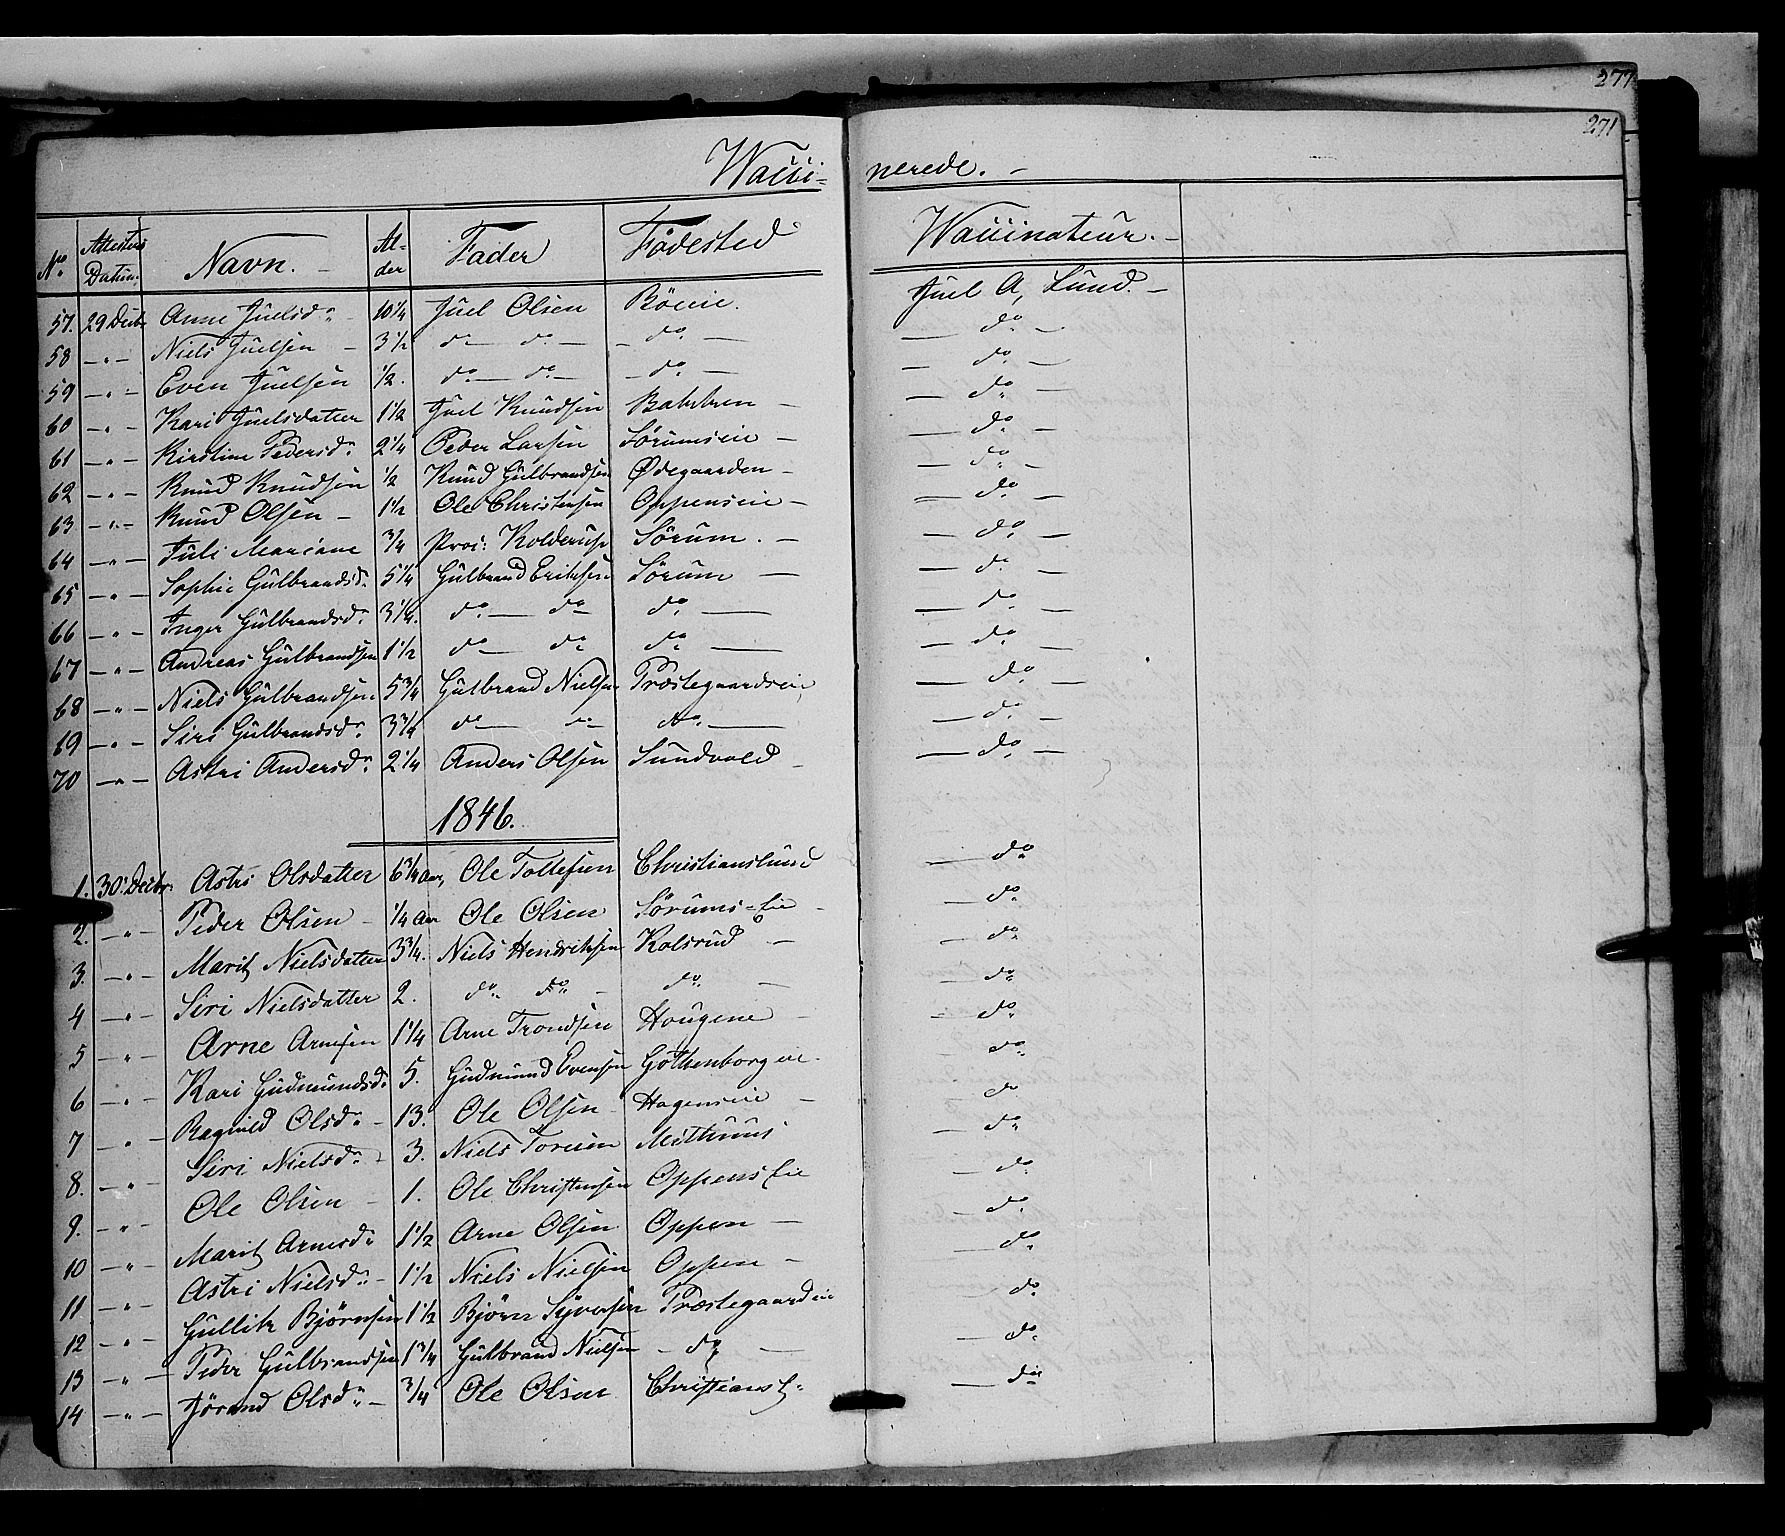 277
271
Wacci= nerede. -
No. Attestens Datum. Navn. - Al- der Fader Födested Waccinateur. -
57. 29 Decbr Anne Juelsd. 10 1/4 Juel Olsen Böeeie. Juel A, Lund. -
58 - " - Niels Juelsen - 3 1/2 do - do - - do - - do -
59 - " - Even Juelsen 1/2. do - do - - do - - do -
60 - " - Kari Juelsdatter 1 1/2 Juel Knudsen Bakken - - do -
61 - " - Kirstine Pedersd. 2 1/4 Peder Larsen Sörumseie - - do -
62 - " - Knud Knudsen 1/2 Knud Gulbrandsen Ødegaarden - - do -
63 - " - Knud Olsen - 1 1/2 Ole Christensen Oppenseie - - do -
64 - " - Juli Mariane 3/4 Proc: Kolderup Sörum. - - do -
65 - " - Sophie Gulbrandsd. 5 1/4 Gulbrand Eriksen Sörum - - do -
66 - " - Inger Gulbrandsd. 3 1/4. do - do do - - do -
67 - " - Andreas Gulbrandsen 1 1/2 do - do do - - do -
68 - " - Niels Gulbrandsen 5 3/4 Gulbrand Nielsen Præstegaardseie - do -
69 - " - Siri Gulbrandsd. 3 3/4 do - do do - - do -
70 - " - Astri Andersd. 2 1/4 Anders Olsen Sundvold - - do -
1846.
1. 30 Decbr. Astri Olsdatter 6 3/4 Aar, Ole Tollefsen Christianslund - do
2. - " - Peder Olsen - 1/4 Aar Ole Olsen Sörums=Eie - - do
3. - " - Marit Nielsdatter 3 3/4. Niels Hendriksen Kolsrud - - do
4 - " - Siri Nielsdatter 2. do do - do - - do
5 - " - Arne Arnesen 1 1/4 Arne Trondsen Hougene - - do
6 - " - Kari Gudmundsd. 5. Gudmund Evensen Gothenborgeie. - do
7 " - Ragnild Olsd. - 13. Ole Olsen - Hagenseie - - do
8. - " - Siri Nielsd. - 3. Niels Toresen - do
9. - " - Ole Olsen - 1. Ole Christensen Oppens Eie - do
10 - " - Marit Arnesd. 1 1/2 Arne Olsen Oppen - - do
11 - " - Astri Nielsd. - 1 1/2 Niels Nielsen Oppen - - do
12 - " - Gullik Björnsen 1 1/2 Björn Syversen Præstegaardeie - do
13 - " - Peder Gulbrandsen 1 3/4 Gulbrand Nielsen - do - - do
14 - " - Jörand Olsd. - 3/4 Ole Olsen Christiansl. - do